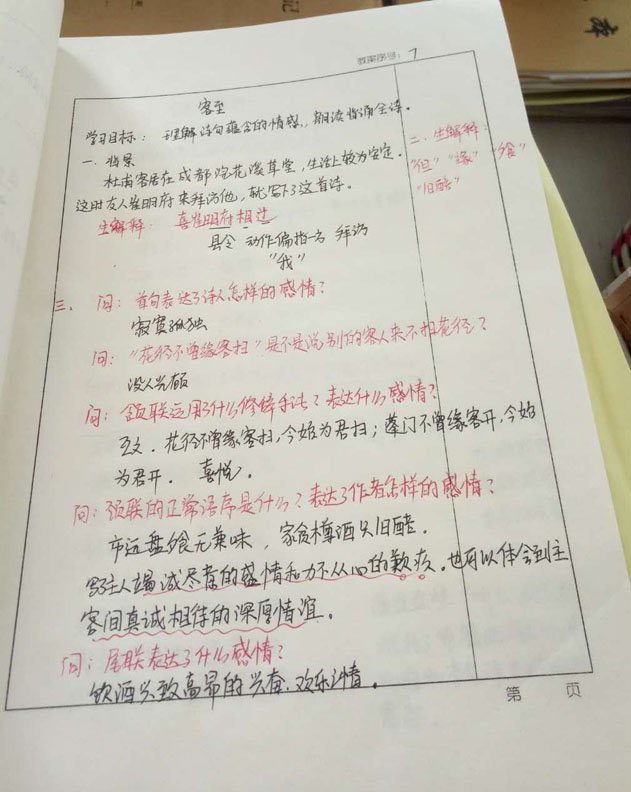 记
本
教案序号: 7
客至
学习目标: 理解诗句蕴含的情感, 朗读背诵全诗。
一. 背景
杜甫客居在成都浣花溪草堂, 生活上较为安定.
这时友人崔明府来拜访他, 就写下了这首诗。
生解释: 喜崔明府相过
县令 动作偏指一方 拜访
"我"
二. 生解释:
"但" "缘" "飧"
"旧醅"
三. 问: 首句表达了诗人怎样的感情?
寂寞孤独
问: "花径不曾缘客扫"是不是说别的客人来不扫花径?
没人光顾
问: 颔联运用了什么修辞手法? 表达什么感情?
互文. 花径不曾缘客扫, 今始为君扫; 蓬门不曾缘客开, 今始
为君开. 喜悦.
问: 颈联的正常语序是什么? 表达了作者怎样的感情?
市远盘飧无兼味, 家贫樽酒只旧醅.
写主人竭诚尽意的盛情和力不从心的歉疚. 也可以体会到主
客间真诚相待的深厚情谊。
问: 尾联表达了什么感情?
饮酒兴致高昂的兴奋. 欢乐之情.
第 页